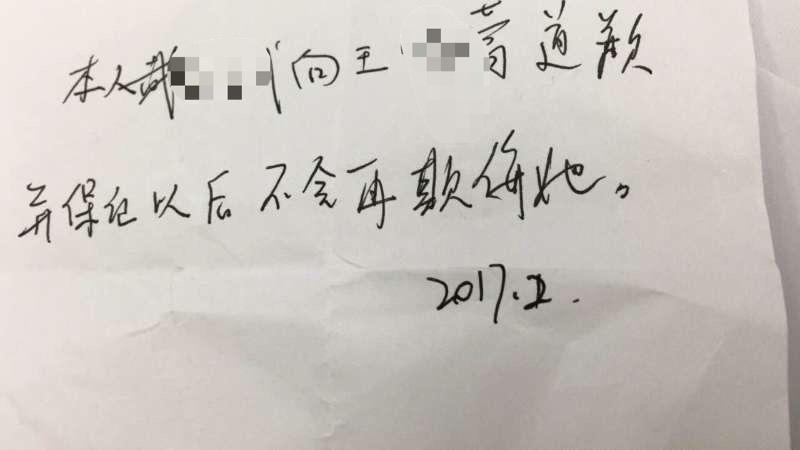 本人戴 向王 菁道歉
并保证以后不会再欺侮她。
2017.2.